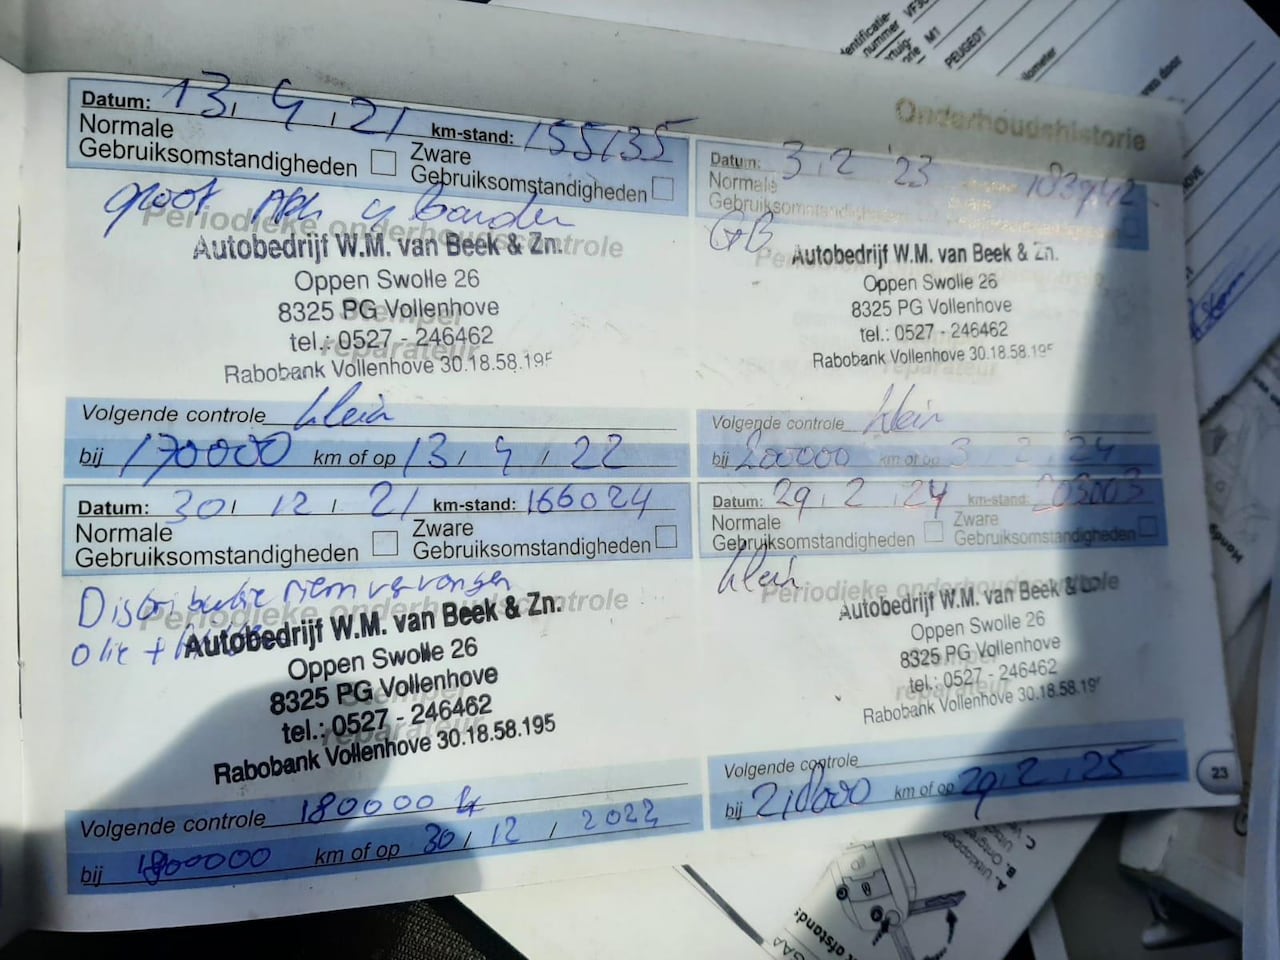 Onderhoudshistorie
Datum: 13, 4, 21 km-stand: 155135
Normale Gebruiksomstandigheden
Zware Gebruiksomstandigheden
groot APK 4 banden
Periodieke onderhoudscontrole
Autobedrijf W.M. van Beek & Zn.
Oppen Swolle 26
8325 PG Vollenhove
tel.: 0527 - 246462
Rabobank Vollenhove 30.18.58.195
Stempel
reparateur
Volgende controle klein
bij 170000 km of op 13, 4, 22
Datum: 30, 12, 21 km-stand: 166024
Normale Gebruiksomstandigheden
Zware Gebruiksomstandigheden
Distributie riem vervangen
olie +
Periodieke onderhoudscontrole
Autobedrijf W.M. van Beek & Zn.
Oppen Swolle 26
8325 PG Vollenhove
tel.: 0527 - 246462
Rabobank Vollenhove 30.18.58.195
reparateur
Volgende controle 180000
bij 1800000 km of op 30, 12, 2022
Datum: 3, 2 '23 183942
Normale
Gebruiksomstandigheden
GB
Autobedrijf W.M. van Beek & Zn.
Oppen Swolle 26
8325 PG Vollenhove
tel.: 0527 - 246462
Rabobank Vollenhove 30.18.58.195
reparateur
Volgende controle klein
bij 200000 km of op 3, 2, 24
Datum: 29, 2, 24 km-stand: 203003
Normale Gebruiksomstandigheden
Zware Gebruiksomstandigheden
klein
Periodieke onderhoudscontrole
Autobedrijf W.M. van Beek & Zn.
Oppen Swolle 26
8325 PG Vollenhove
tel.: 0527 - 246462
Rabobank Vollenhove 30.18.58.19
reparateur
Volgende controle
bij 218000 km of op 29, 2, 25
23
PEUGEOT